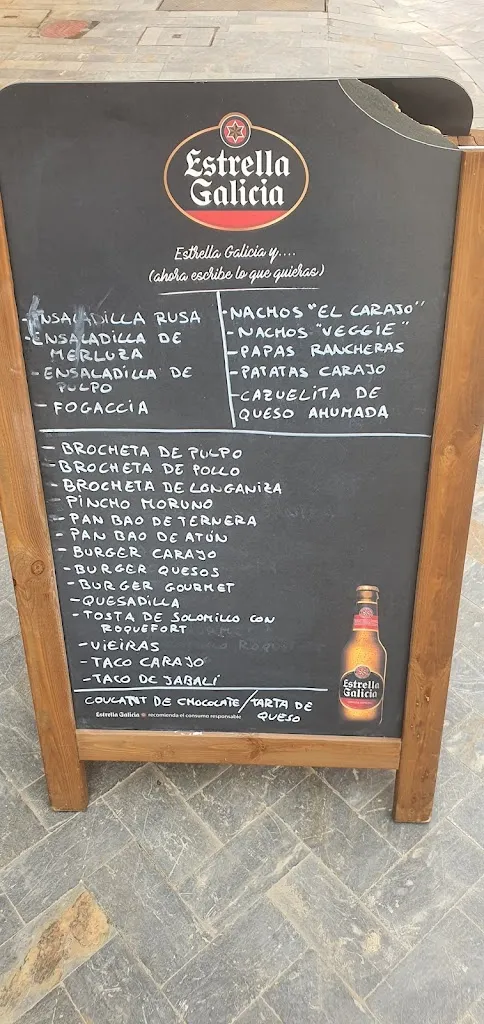 Estrella
Galicia
Estrella Galicia y....
(ahora escribe lo que quieras)
-ENSALADILLA RUSA
-ENSALADILLA DE
MERLUZA
-ENSALADILLA DE
PULPO
- FOGACCIA
-NACHOS "EL CARAJO"
-NACHOS "VEGGIE"
-PAPAS RANCHERAS
-PATATAS CARAJO
-CAZUELITA DE
QUESO AHUMADA
- BROCHETA DE PULPO
- BROCHETA DE POLLO
- BROCHETA DE LONGANIZA
- PINCHO MORUNO
- PAN BAO DE TERNERA
- PAN BAO DE ATÚN
- BURGER CARAJO
- BURGER QUESOS
- BURGER GOURMET
- QUESADILLA
- TOSTA DE SOLOMILLO CON
ROQUEFORT
- VIEIRAS
- TACO CARAJO
- TACO DE JABALÍ
COULANT DE CHOCOLATE/TARTA DE
QUESO
Estrella Galicia recomienda el consumo responsable
Estrella
Galicia